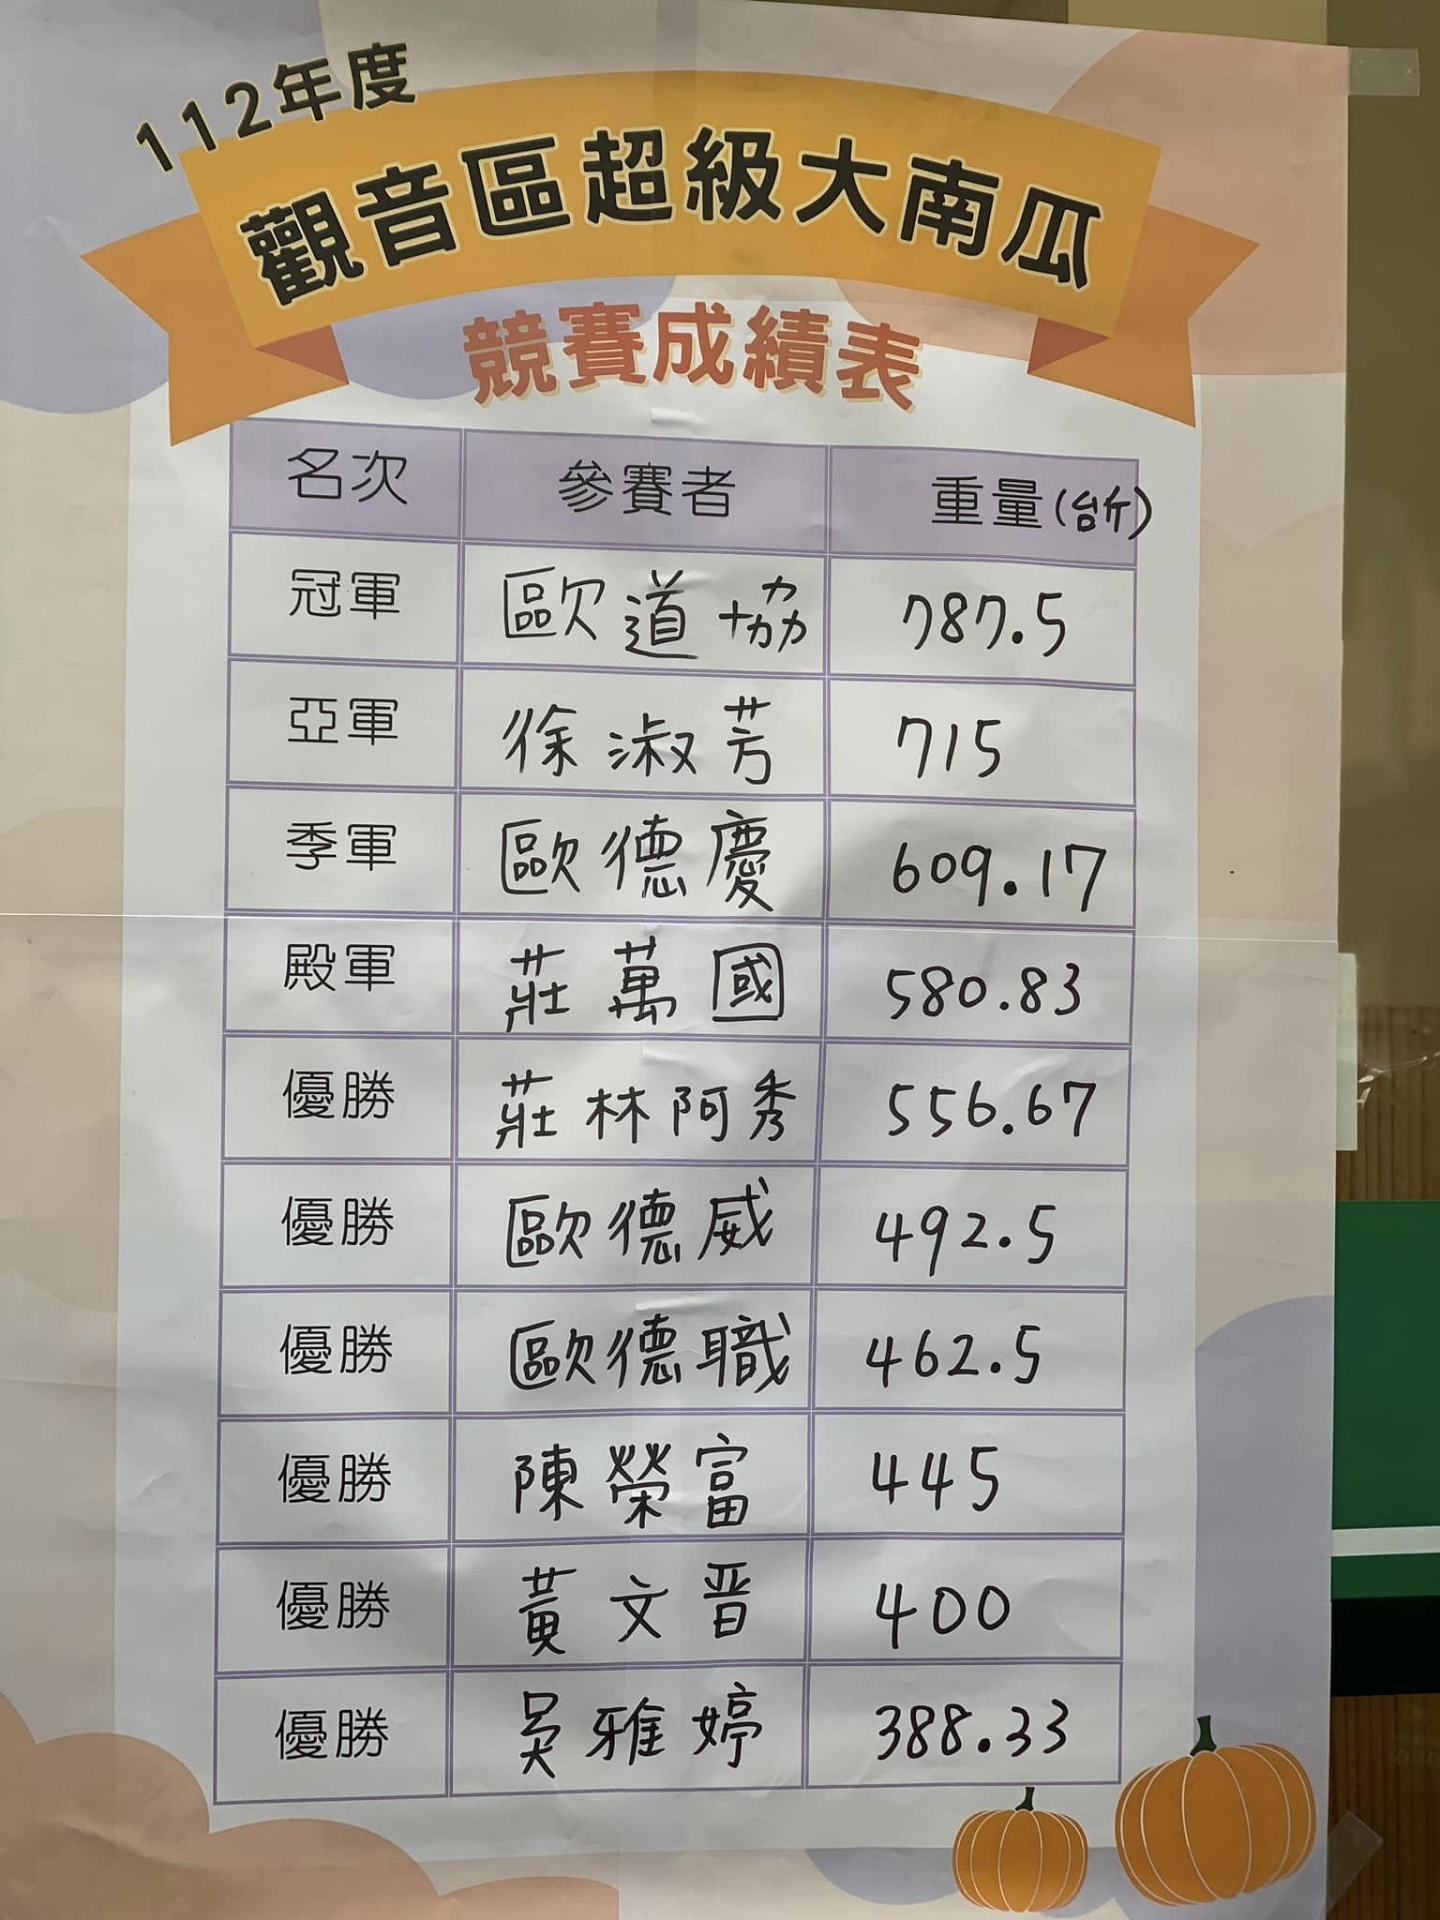 112年度
觀音區超級大南瓜
競賽成績表
名次 參賽者 重量(台斤)
冠軍 歐道協 787.5
亞軍 徐淑芳 715
季軍 歐德慶 609.17
殿軍 莊萬國 580.83
優勝 莊林阿秀 556.67
優勝 歐德威 492.5
優勝 歐德職 462.5
優勝 陳榮富 445
優勝 黃文晋 400
優勝 吳雅婷 388.33